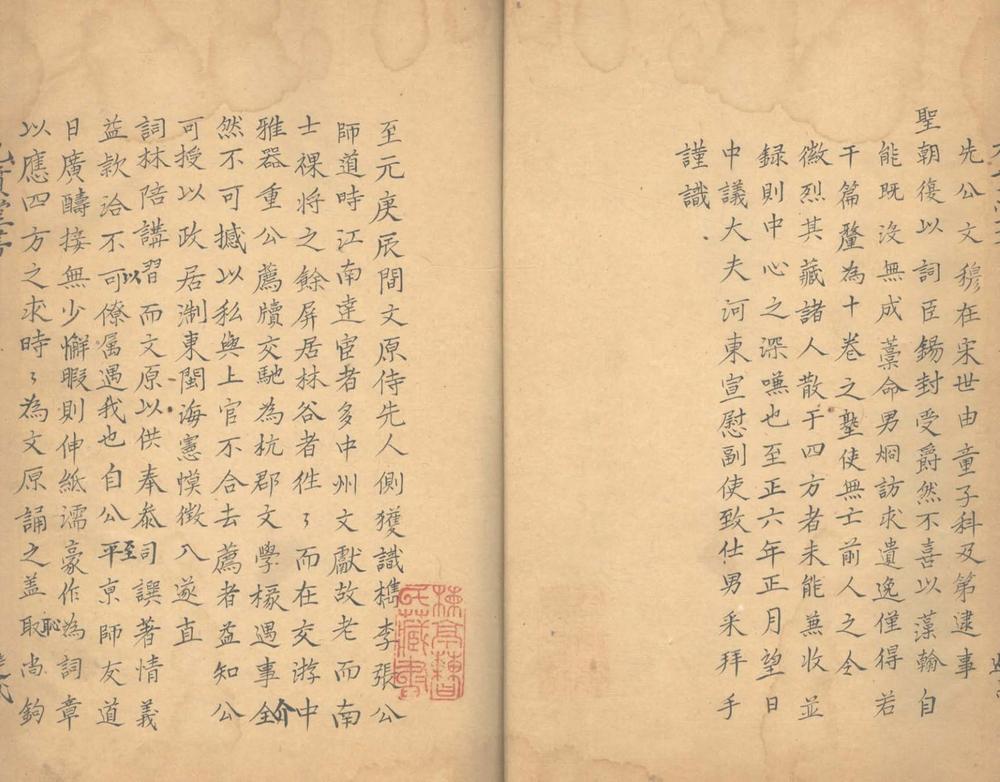 先公文穆在宋世由童子科及第逮事
聖朝復以詞臣錫封受爵然不喜以藻翰自
能既沒無成藁命男炯訪求遺逸僅得若
干篇釐為十卷之塾使無士前人之令
徽烈其藏諸人散于四方者未能兼收並
録則中心之深嗛也至正六年正月望日
中議大夫河東宣慰副使致仕男采拜手
謹識
至元庚辰間文原侍先人側獲識檇李張公
師道時江南達宦者多中州文獻故老而南
士裸將之餘屏居林谷者徃〻而在交游中
雅器重公薦牘交馳為杭郡文學橼遇事全介
然不可撼以私與上官不合去薦者益知公
可授以政居淛東閩海憲幙徴入遂直
詞林陪講習而文原以供奉泰司譔著情義
益款洽不可以僚属遇我也自公平至京師友道
日廣醻接無少懈暇則伸紙濡豪作為詞章
以應四方之求時〻為文原誦之盖取恥尚鉤